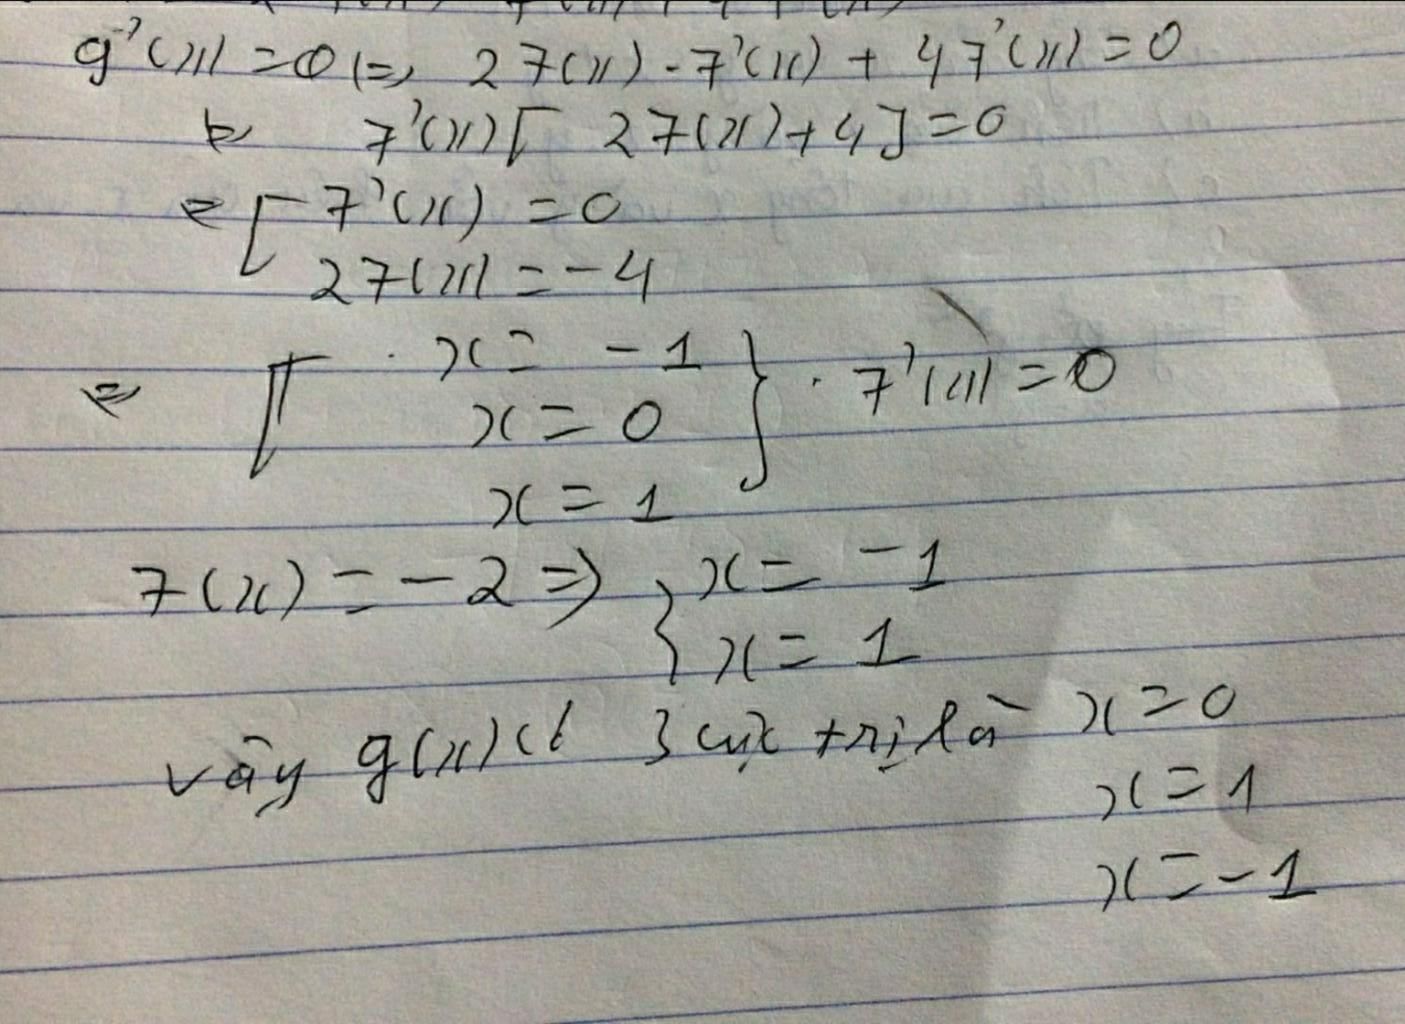 g'(x) = 0 (=) 2f(x) . f'(x) + 4f'(x) = 0
(=) f'(x) [ 2f(x) + 4 ] = 0
(=) [ f'(x) = 0
2f(x) = -4
(=) [ x = -1
x = 0 } . f'(x) = 0
x = 1
f(x) = -2 => { x = -1
x = 1
vậy g(x) có 3 cực trị là x = 0
x = 1
x = -1